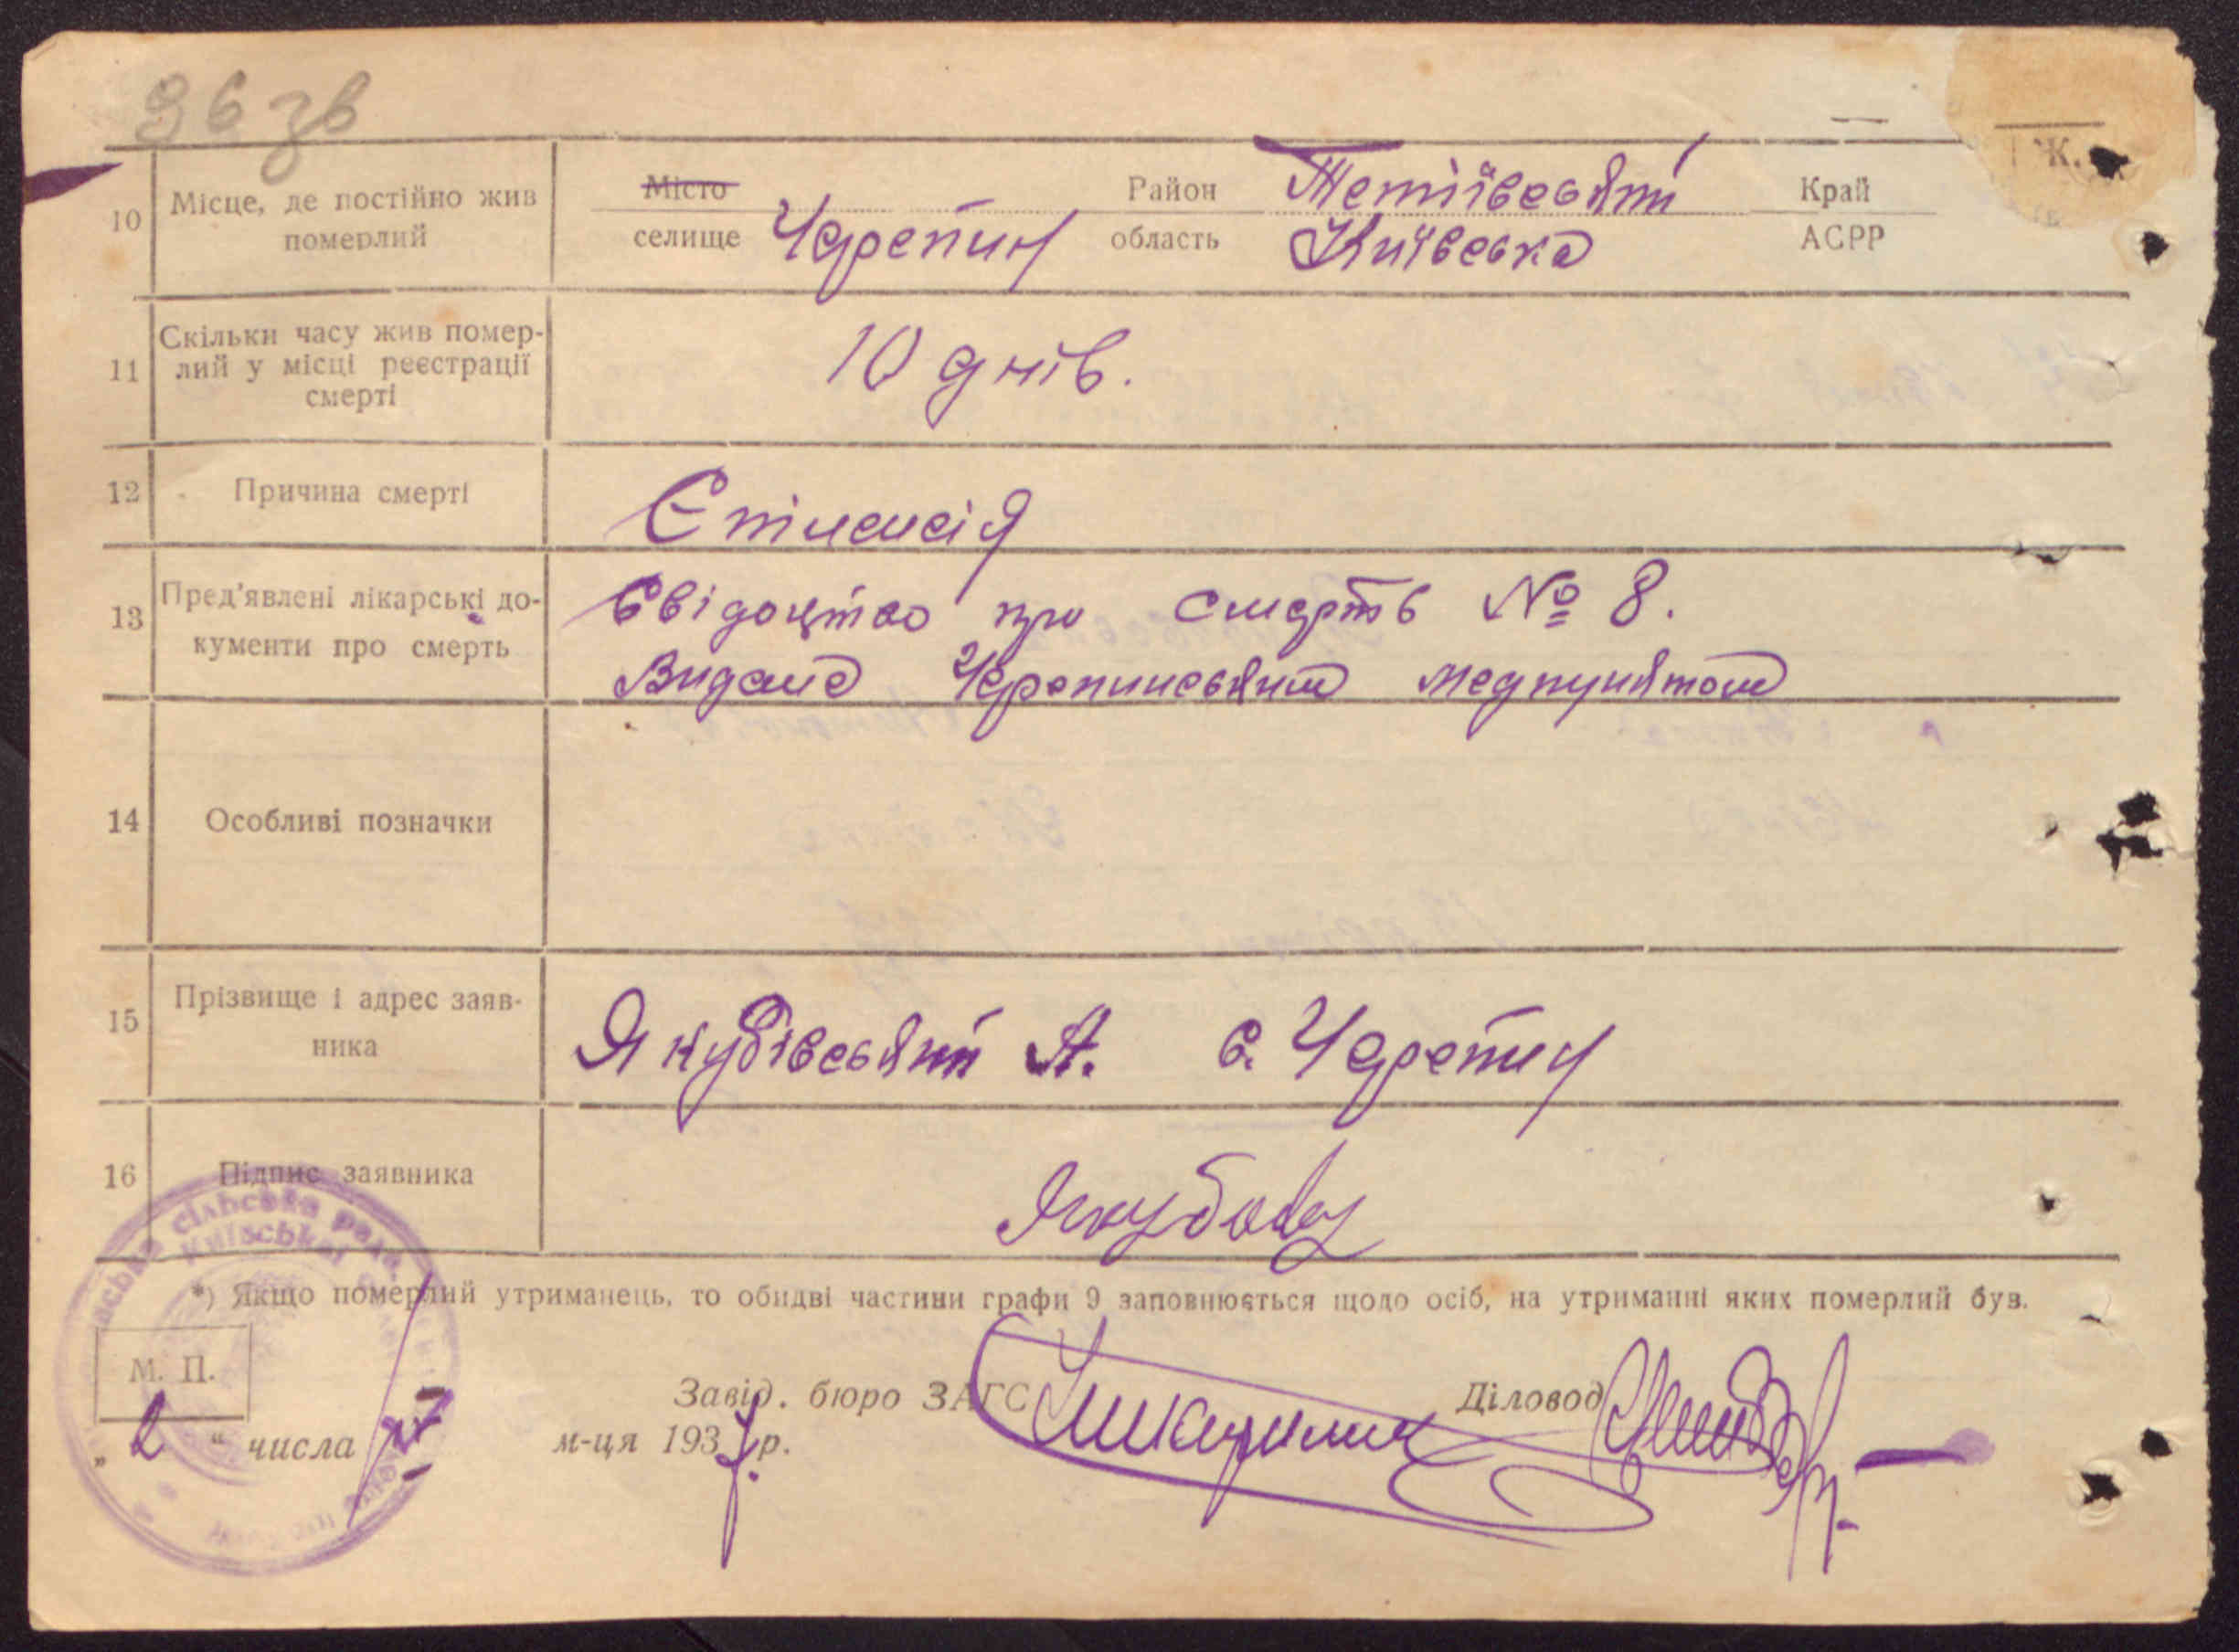 96 зв
Ж.
10 Місце, де постійно жив померлий
Місто Район Тетіївський Край
селище Черепин область Київська АСРР
11 Скільки часу жив помер-
лий у місці реєстрації
смерті
10 днів.
12 Причина смерті Єпілепсія
13 Пред'явлені лікарські до-
кументи про смерть
Свідоцтво про смерть № 8.
Видане Черепинським медпунктом
14 Особливі позначки
15 Прізвище і адрес заяв-
ника
Якубівський А. с. Черепин
16 Підпис заявника
сільська рада
Київської
*) Якщо померлий утриманець, то обидві частини графи 9 заповнюється щодо осіб, на утриманні яких померлий був.
М. П.
Завід. бюро ЗАГС Діловод
„2“ числа м-ця 1937 р.